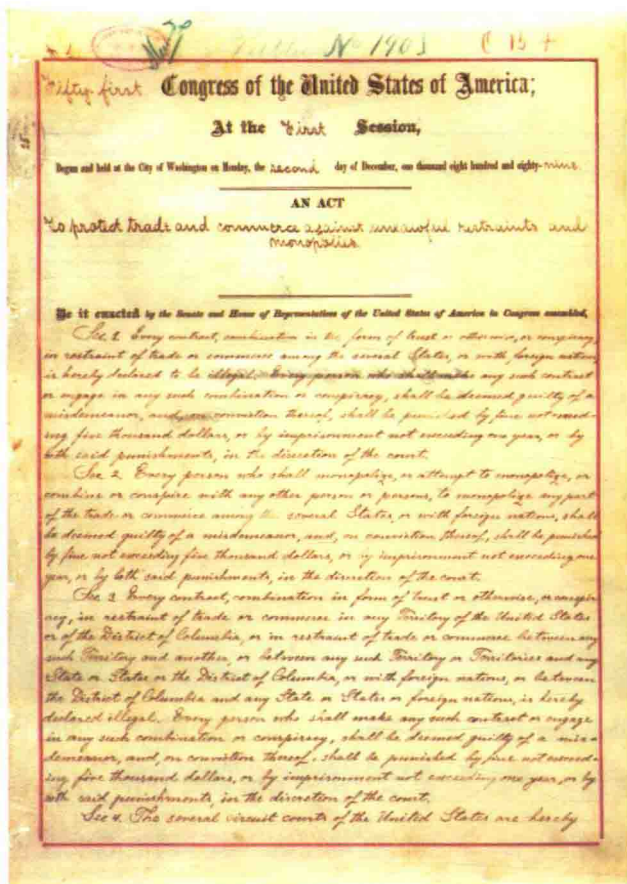 Public No 1903
Fifty-first Congress of the United States of America;
At the First Session,
Begun and held at the City of Washington on Monday, the second day of December, one thousand eight hundred and eighty-nine.
AN ACT
To protect trade and commerce against unlawful restraints and
monopolies.
Be it enacted by the Senate and House of Representatives of the United States of America in Congress assembled,
Sec. 1. Every contract, combination in the form of trust or otherwise, or conspiracy,
in restraint of trade or commerce among the several States, or with foreign nations,
is hereby declared to be illegal. Every person who shall make any such contract
or engage in any such combination or conspiracy, shall be deemed guilty of a
misdemeanor, and, on conviction thereof, shall be punished by fine not exceed-
ing five thousand dollars, or by imprisonment not exceeding one year, or by
both said punishments, in the discretion of the court.
Sec. 2. Every person who shall monopolize, or attempt to monopolize, or
combine or conspire with any other person or persons, to monopolize any part
of the trade or commerce among the several States, or with foreign nations, shall
be deemed guilty of a misdemeanor, and, on conviction thereof, shall be punished
by fine not exceeding five thousand dollars, or by imprisonment not exceeding one
year, or by both said punishments, in the discretion of the court.
Sec. 3. Every contract, combination in form of trust or otherwise, or conspir-
acy, in restraint of trade or commerce in any Territory of the United States
or of the District of Columbia, or in restraint of trade or commerce between any
such Territory and another, or between any such Territory or Territories and any
State or States or the District of Columbia, or with foreign nations, or between
the District of Columbia and any State or States or foreign nations, is hereby
declared illegal. Every person who shall make any such contract or engage
in any such combination or conspiracy, shall be deemed guilty of a mis-
demeanor, and, on conviction thereof, shall be punished by fine not exceed-
ing five thousand dollars, or by imprisonment not exceeding one year, or by
both said punishments, in the discretion of the court.
Sec. 4. The several circuit courts of the United States are hereby